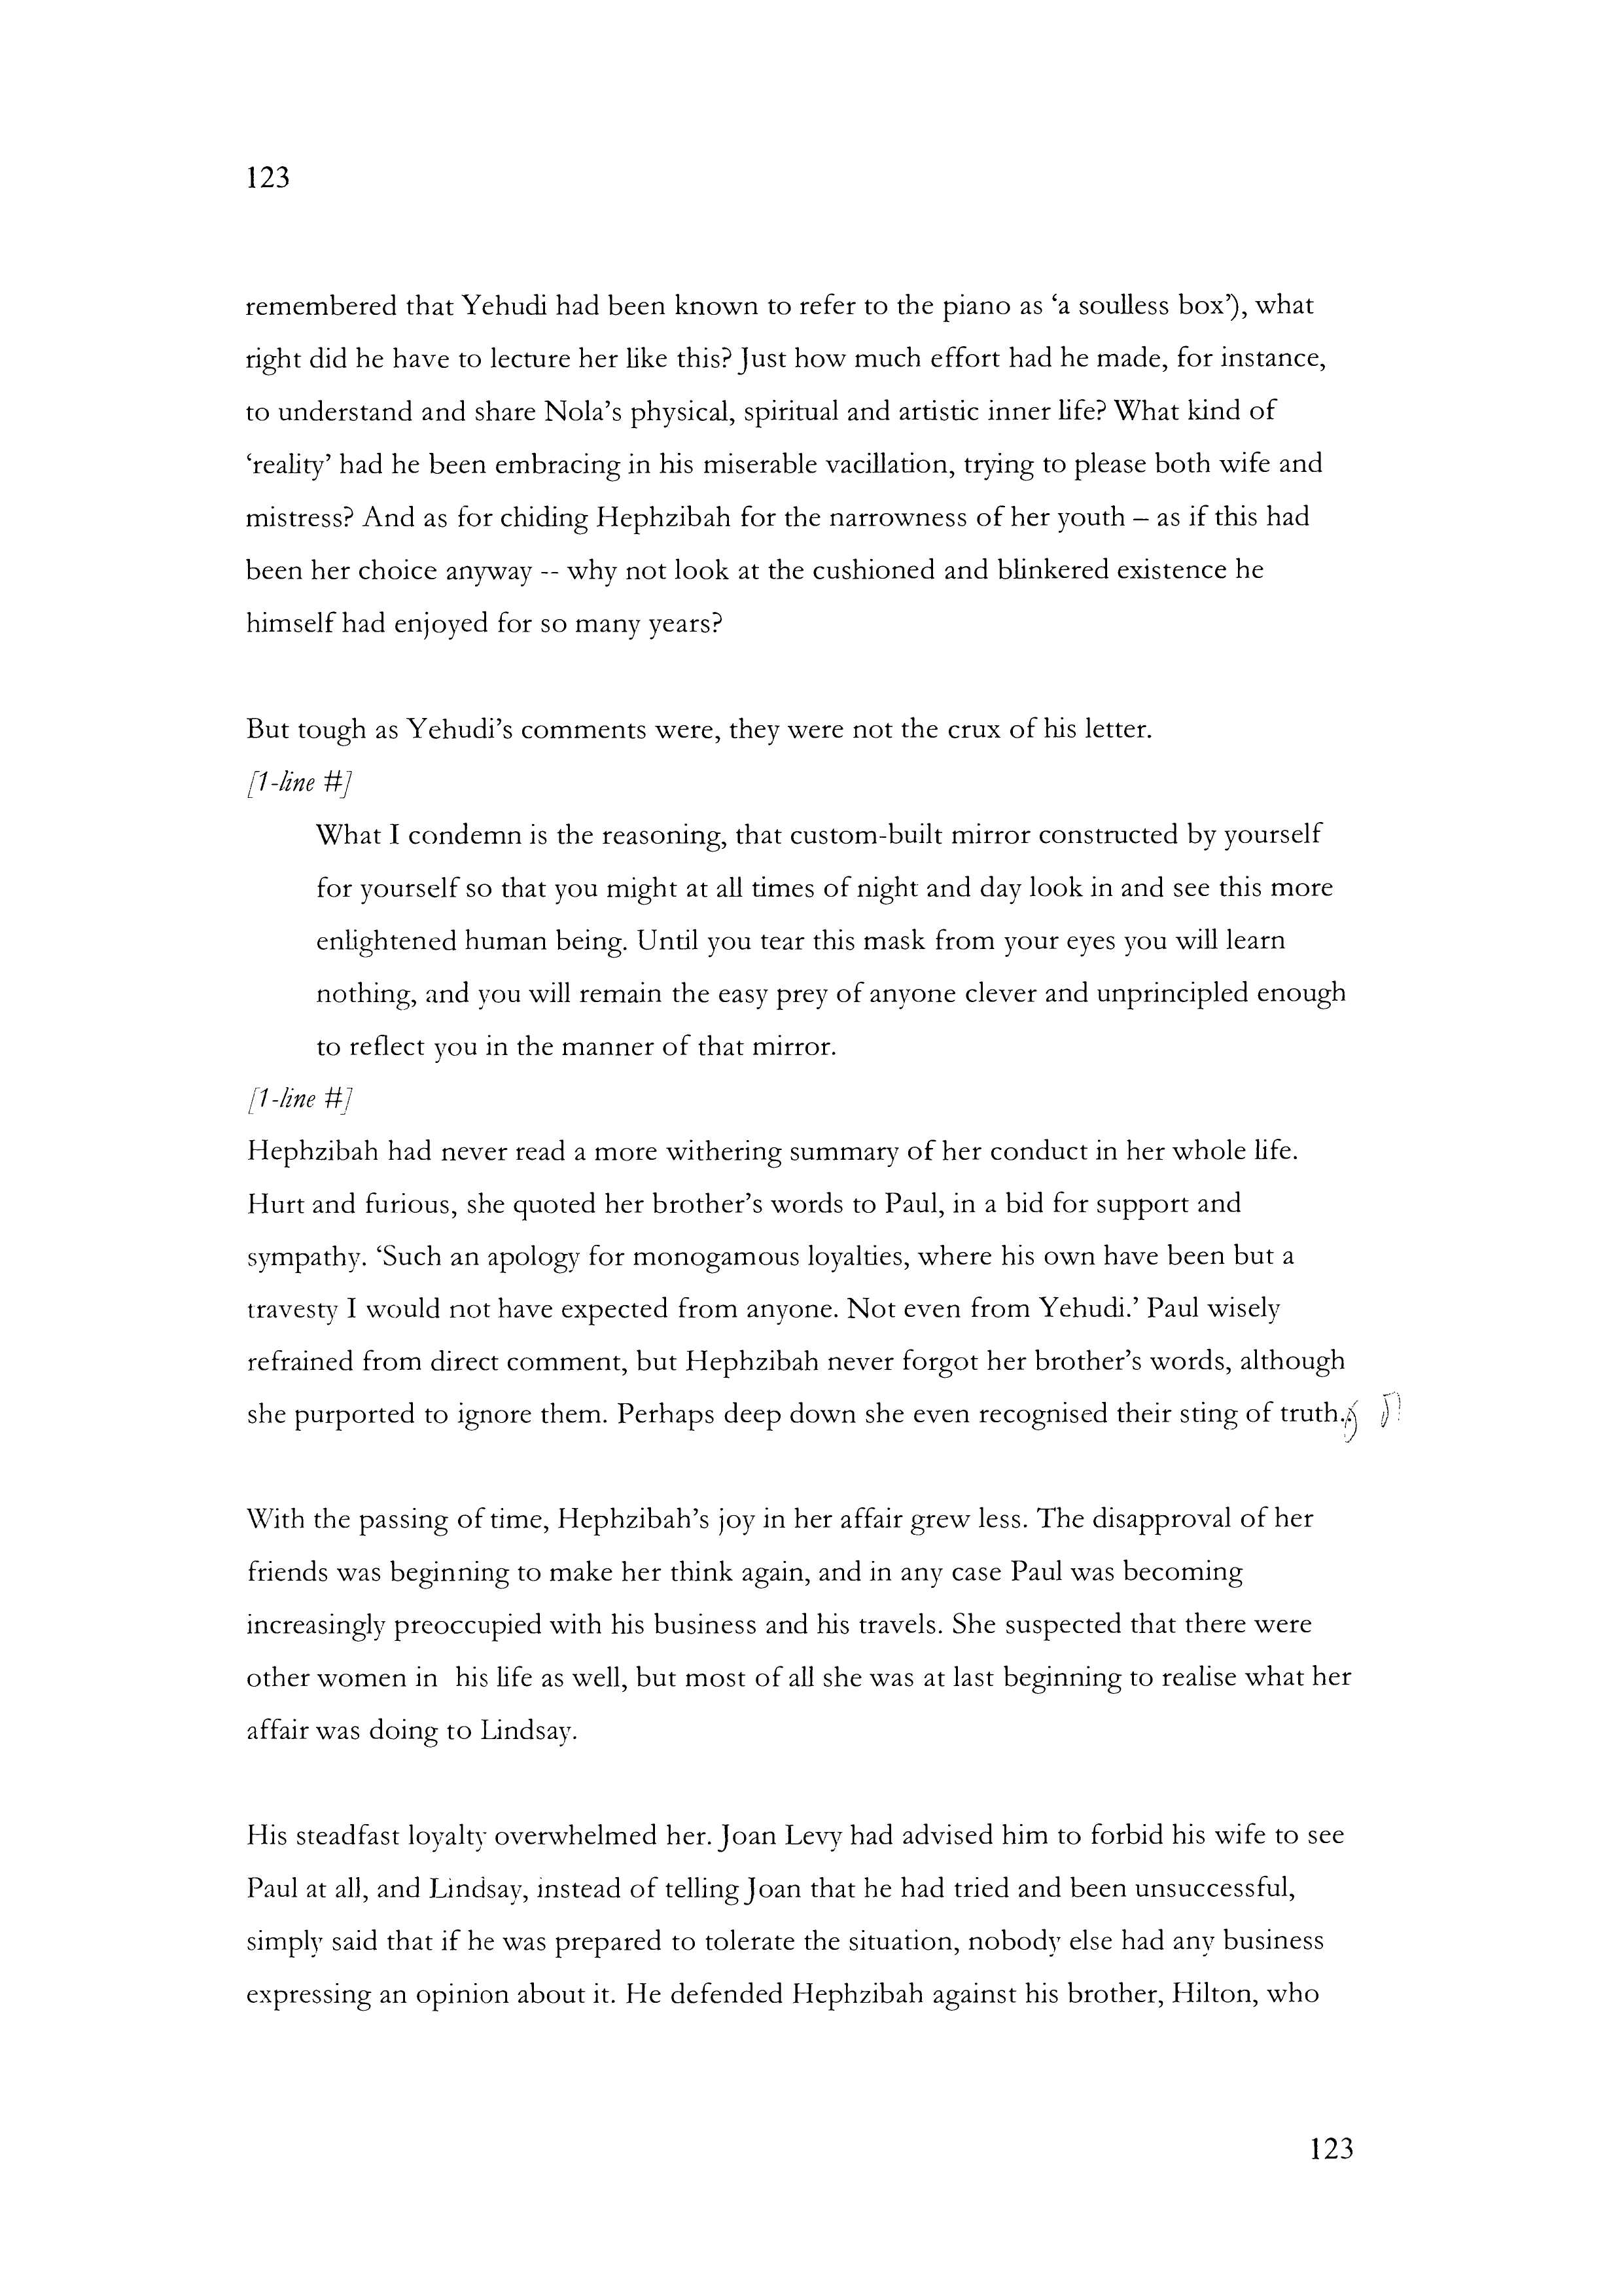 123
remembered that Yehudi had been known to refer to the piano as ‘a soulless box’), what
right did he have to lecture her like this? Just how much effort had he made, for instance,
to understand and share Nola’s physical, spiritual and artistic inner life? What kind of
‘reality’ had he been embracing in his miserable vacillation, trying to please both wife and
mistress? And as for chiding Hephzibah for the narrowness of her youth – as if this had
been her choice anyway -- why not look at the cushioned and blinkered existence he
himself had enjoyed for so many years?
But tough as Yehudi’s comments were, they were not the crux of his letter.
[1-line #]
What I condemn is the reasoning, that custom-built mirror constructed by yourself
for yourself so that you might at all times of night and day look in and see this more
enlightened human being. Until you tear this mask from your eyes you will learn
nothing, and you will remain the easy prey of anyone clever and unprincipled enough
to reflect you in the manner of that mirror.
[1-line #]
Hephzibah had never read a more withering summary of her conduct in her whole life.
Hurt and furious, she quoted her brother’s words to Paul, in a bid for support and
sympathy. ‘Such an apology for monogamous loyalties, where his own have been but a
travesty I would not have expected from anyone. Not even from Yehudi.’ Paul wisely
refrained from direct comment, but Hephzibah never forgot her brother’s words, although
she purported to ignore them. Perhaps deep down she even recognised their sting of truth.
With the passing of time, Hephzibah’s joy in her affair grew less. The disapproval of her
friends was beginning to make her think again, and in any case Paul was becoming
increasingly preoccupied with his business and his travels. She suspected that there were
other women in his life as well, but most of all she was at last beginning to realise what her
affair was doing to Lindsay.
His steadfast loyalty overwhelmed her. Joan Levy had advised him to forbid his wife to see
Paul at all, and Lindsay, instead of telling Joan that he had tried and been unsuccessful,
simply said that if he was prepared to tolerate the situation, nobody else had any business
expressing an opinion about it. He defended Hephzibah against his brother, Hilton, who
123